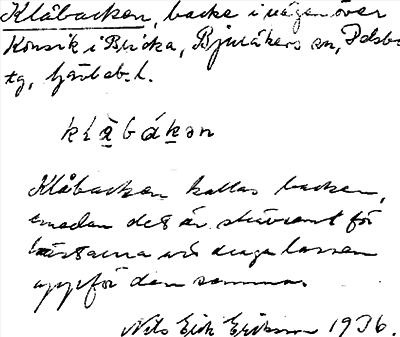 Klåbacken, backe i vägen över
Konsik i Bricka, Bjuråkers sn, Delsbo
tg, Gävleb. l.
klåbákən
Klåbacken kallas backen,
emedan det är strävsamt för
hästarna att draga lassen
uppför den samma.
Nils Erik Eriksson 1936.